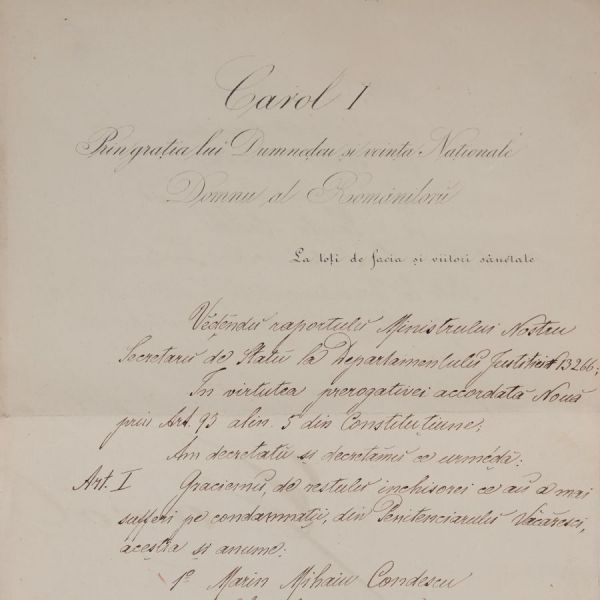 Carol I
Prin grația lui Dumnedeu și voința Națională
Domnu al Românilorŭ
La toți de facia și viitori sănetate
Vĕḑendŭ raportulŭ Ministrului Nostru
Secretarŭ de Statŭ la Departamentulŭ Justitiei 13266;
In virtutea prerogativei accordată Nouă
prin Art. 93 alin. 5 din Constituțiune;
Am decretatŭ și decretămŭ ce urméḑă:
Art. I Graciemŭ, de restulŭ inchisorei ce aŭ a mai
sufferi pe condamnații, din Penitenciarulŭ Văcăresci,
aceștia și anume:
1º Marin Mihaiu Condescu